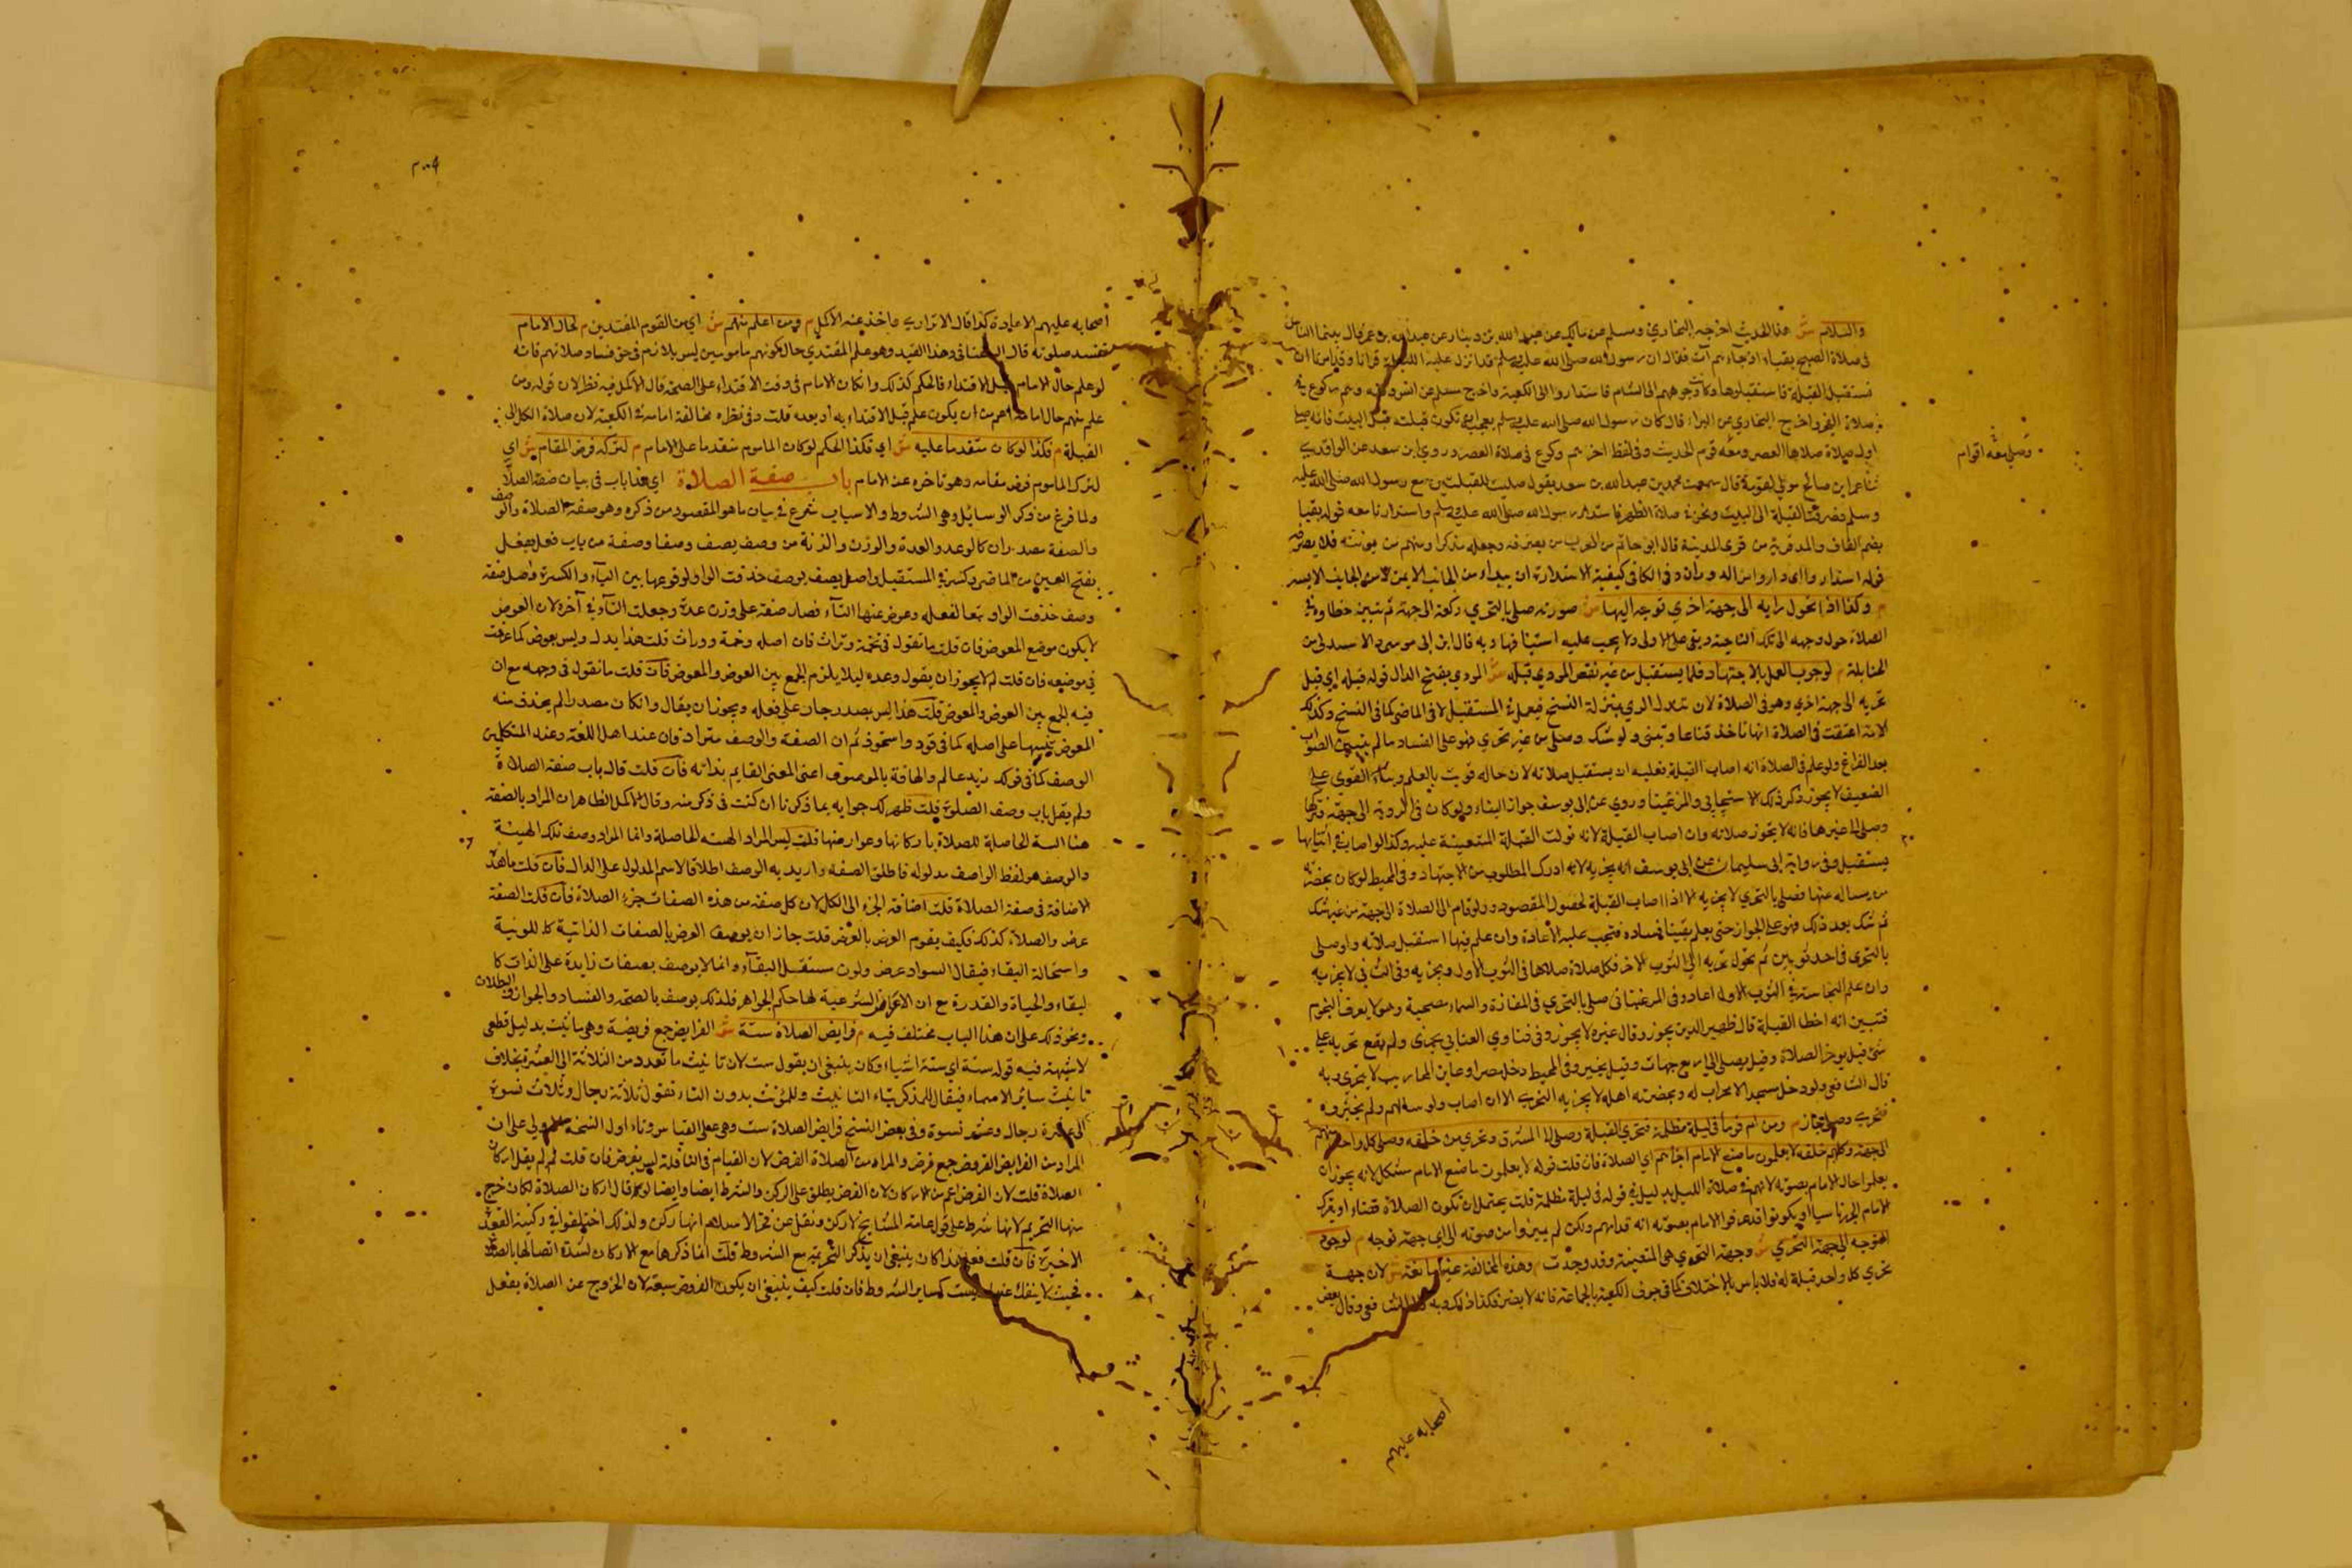 والسلام ش هذا الحديث اخرجه البخاري ومسلم عن مالك عن عبد الله بن دينار عن عبد الله بن عمر قال بينما الناس
في صلاة الصبح بقباء اذ جاءهم آت فقال ان رسول الله صلى الله عليه وسلم قد انزل عليه الليلة قرانا وقد امر ان
نستقبل القبلة فاستقبلوها وكانت وجوههم الى الشام فاستداروا الى الكعبة واخرج مسلم عن انس وفيه وهم ركوع في
صلاة الفجر واخرج البخاري عن البراء قال كان رسول الله صلى الله عليه وسلم يعجبه ان تكون قبلته قبل البيت فانه صلى
اول صلاة صلاها العصر ومعه قوم الحديث وفي لفظ اخر وهم ركوع في صلاة العصر وروي ابن سعد عن الواقدي
وصلى معه اقوام
ثنا عمر ابن صالح مولى التومة قال سمعت محمد بن عبد الله بن سعد يقول صليت القبلتين مع رسول الله صلى الله عليه
وسلم فصرفت القبلة الى البيت ونحن في صلاة الظهر فاستدار رسول الله صلى الله عليه وسلم واستدرنا معه قوله بقبا
بضم القاف والمد قرية من قرى المدينة قال ابو حاتم من العرب من يصرفه ويجعله مذكرا ومنهم من يونثه فلا يصرفه
قوله استداروا اي داروا من الدوران وفي الكافي كيفية الاستدارة ان يبداء من الجانب الايمن لا من الجانب الايسر
م وكذا اذا تحول رايه الى جهة اخري توجه اليها ش صورته صلى بالتحري ركعة الى جهة ثم تبين خطاوه في
الصلاة حول وجهه الى تلك الناحية وبني على الاولى ولا يجب عليه استينافها وبه قال ابن ابي موسى والامدي من
الحنابلة م لوجوب العمل بالاجتهاد فيما يستقبل من غير نقض المودي قبله ش المودي بفتح الدال قوله قبله اي قبل
تحريه الى جهة اخري وهو في الصلاة لان تبدل الراي بمنزلة النسخ فيعمل في المستقبل لا في الماضي كما في النسخ وكذلك
الامة اعتقت في الصلاة انها تاخذ قناعا وتبني ولو شك وصلى من غير تحري فهو على الفساد ما لم يتبين الصواب
بعد الفراغ ولو علم في الصلاة انه اصاب القبلة فعليه ان يستقبل صلاته لان حاله قويت بالعلم وبناء القوي على
الضعيف لا يجوز ذكر ذلك الاسبيجابي والمرغيناني وروي عن ابي يوسف جواز البناء ولو كان في الروية الى جهة فتركها
وصلى الى غيرها فانه لا تجوز صلاته وان اصاب القبلة لانه تولت القبلة المتعينة عليه وكذا لو اصاب في اثنايها
يستقبل وفي رواية ابي سليمان عن ابي يوسف انه يجزيه لانه ادرك المطلوب من الاجتهاد وفي المحيط لو كان بحضرته
من يساله عنها فصلى بالتحري لا يجزيه الا اذا اصاب القبلة لحصول المقصود ولو قام الى الصلاة الى جهة من غير شك
ثم شك بعد ذلك فهو على الجواز حتى يعلم يقينا فساده فتجب عليه الاعادة وان علم فيها استقبل صلاته ولو صلى
بالتحري في احد ثوبين ثم تحول تحريه الى الثوب الاخر فكل صلاة صلاها في الثوب الاول يجزيه وفي الثاني لا يجزيه
وان علم النجاسة في الثوب الاول اعاد وفي المرغيناني صلى بالتحري في المفازة والسماء مصحية وهو لا يعرف النجوم
فتبين انه اخطا القبلة قال ظهير الدين يجوز وقال غيره لا يجوز وفي فتاوي العتابي تحرى ولم يقع تحريه على
شئ قيل يوخر الصلاة وقيل يصلي الى اربع جهات وقيل يخير وفي المحيط دخل مصرا وعاين المحاريب لا يتحري وبه
قال الشافعي ولو دخل مسجد الا محراب له وبحضرته اهله لا يجزيه التحري الا ان اصاب ولو سالهم ولم يخبروه
فتحري وصلى جاز م ومن ام قوما في ليلة مظلمة فتحري القبلة وصلى الى المشرق وتحري من خلفه وصلى كل واحد منهم
الى جهة وكلهم خلفه لا يعلمون ما صنع الامام اجزاهم اي الصلاة فان قلت قوله لا يعلمون ما صنع الامام مشكل لانه يجوز ان
يعلموا حال الامام بصوته لانهم في صلاة الليل بدليل قوله في ليلة مظلمة قلت يحتمل ان تكون الصلاة قضاء او يترك
الامام الجهر ناسيا او يكونوا قد عرفوا الامام بصوته انه قدامهم ولكن لم يميزوا من صوته الى اي جهة توجه م لوجود
التوجه الى جهة التحري ش وجهة التحري هي المتعينة وقد وجدت م وهذه المخالفة غير مانعة ش لان جهة
تحري كل واحد قبلة له فلا باس بالاختلاف كما في جوف الكعبة بالجماعة فانه لا يضر فكذا ذلك وبه قال الشافعي وقال بعض
اصحابه عليهم
اصحابه عليهم الاعادة كذا قال الاترازي واخذ عنه الاكمل م ومن اعلم منهم ش اي من القوم المقتدين م بحال الامام
تفسد صلوته قال السغناقي وهذا القيد وهو علم المقتدي حال كونهم مامومين ليس بلازم في حق فساد صلاتهم فانه
لو علم حال الامام قبل الاقتداء فالحكم كذلك وان كان الامام في وقت الاقتداء على الصحة قال الاكمل فيه نظر لان قوله ومن
علم منهم حال امامه اعم من ان يكون علم قبل الاقتداء به او بعده قلت وفي نظره مخالفة امامه في الكعبة لان صلاة الكل الى
القبلة م فكذا لو كان متقدما عليه ش اي فكذا الحكم لو كان الماموم متقدما على الامام م لتركه فرض المقام ش اي
لترك الماموم فرض مقامه وهو تاخره عن الامام باب صفة الصلاة اي هذا باب في بيان صفة الصلاة
ولما فرغ من ذكر الوسائل وهي الشروط والاسباب شرع في بيان ما هو المقصود من ذكره وهو صفة الصلاة والوصف
والصفة مصدران كالوعد والعدة والوزن والزنة من وصف يصف وصفا وصفة من باب فعل يفعل
بفتح العين من الماضي وكسره في المستقبل واصل يصف يوصف حذفت الواو لوقوعها بين الياء والكسرة واصل صفة
وصف حذفت الواو تبعا لفعله وعوض عنها التاء فصار صفة على وزن عدة وجعلت التاء في آخره لان العوض
لا يكون موضع المعوض فان قلت ما تقول في تخمة وتراث فان اصله وخمة ووراث قلت هذا بدل وليس بعوض كما عرفت
في موضعه فان قلت لم لا يجوز ان يقول وعده ليلا يلزم الجمع بين العوض والمعوض فان قلت ما تقول في وجهه مع ان
فيه الجمع بين العوض والمعوض قلت هذا ليس بمصدر جار على فعله ويجوز ان يقال وان كان مصدرا لم يحذف منه
المعوض تنبيها على اصله كما في قود واستحوذ ثم ان الصفة والوصف مترادفان عند اهل اللغة وعند المتكلمين
الوصف كما في قولك زيد عالم والصفة بالموصوف اعني المعنى القايم بذاته فان قلت قال باب صفة الصلاة
ولم يقل باب وصف الصلوة قلت ظهر لك جوابه بما ذكرنا ان كنت في ذكر منه وقال الاكمل الظاهر ان المراد بالصفة
هنا الهيئة الحاصلة للصلاة باركانها وعوارضها قلت ليس المراد الهيئة الحاصلة وانما المراد وصف تلك الهيئة
والوصف هو لفظ الواصف مدلوله فاطلق الصفة واريد به الوصف اطلاقا لاسم المدلول على الدال فان قلت ما هذه
الاضافة في صفة الصلاة قلت اضافة الجزء الى الكل لان كل صفة من هذه الصفات جزء الصلاة فان قلت الصفة
عرض والصلاة كذلك فكيف يقوم العرض بالعرض قلت جاز ان يوصف العرض بالصفات الذاتية كاللونية
واستحالة البقاء فيقال السواد عرض ولون مستحيل البقاء وانما لا يوصف بصفات زايدة على الذات كا
لبقاء والحياة والقدرة مع ان الاعراض الشرعية لها حكم الجواهر فلذلك يوصف بالصحة والفساد والجواز والبطلان
ونحو ذلك على ان هذا الباب مختلف فيه م فرايض الصلاة ستة ش الفرايض جمع فريضة وهي ما ثبت بدليل قطعي
لا شبهة فيه قوله ستة اي ستة اشياء وكان ينبغي ان يقول ست لان تانيث ما تعدد من الثلاثة الى العشرة بخلاف
تانيث سائر الاسماء فيقال للمذكر بتاء التانيث وللمؤنث بدون التاء تقول ثلاثة رجال وثلاث نسوة
الى عشرة رجال وعشر نسوة وفي بعض النسخ فرايض الصلاة ست وهي على القياس وتاول النسخة الاولى على ان
المراد من الفرايض الفروض جمع فرض والمراد من الصلاة الفرض لان القيام في النافلة ليس بفرض فان قلت لم لم يقل اركان
الصلاة قلت لان الفرض اعم من الاركان لان الفرض يطلق على الركن والشرط ايضا وايضا لو قال اركان الصلاة لكان خرج
منها التحريم لانها شرط على قول عامة المشايخ لا ركن ونقل عن فخر الاسلام انها ركن ولذلك اختلفوا في ركنية القعدة
الاخيرة فان قلت فعلى هذا كان ينبغي ان يذكر التحريمة مع الشروط قلت انما ذكرها مع الاركان لشدة اتصالها بالصلاة
بحيث لا ينفك عنها ليست كساير الشروط فان قلت كيف ينبغي ان يكون الفروض سبعة لان الخروج عن الصلاة بفعل